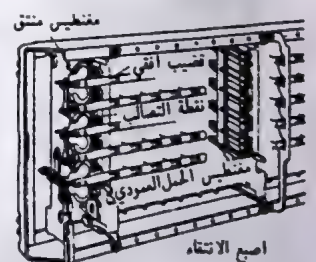 مغنطيس منتق
قضيب أفقي
نقطة التصالب
مغنطيس الحمل العمودي
اصبع الانتقاء